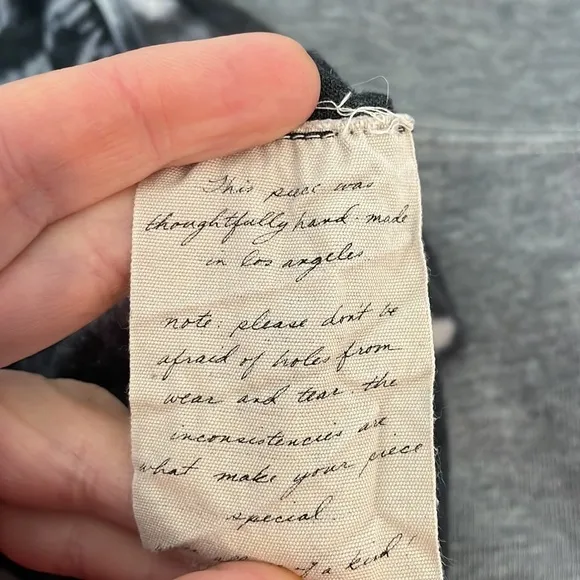 This piece was
thoughtfully hand-made
in los angeles.
note: please don't be
afraid of holes from
wear and tear. the
inconsistencies are
what make your piece
special.
of a kind!